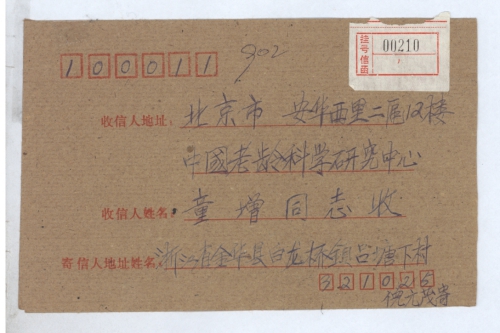 挂号信函
00210
100011
902
收信人地址: 北京市 安华西里二區13楼
中國老龄科学研究中心
收信人姓名: 童增同志收
寄信人地址姓名: 浙江省金华县白龙桥镇吕塘下村
321025
倪元茂寄